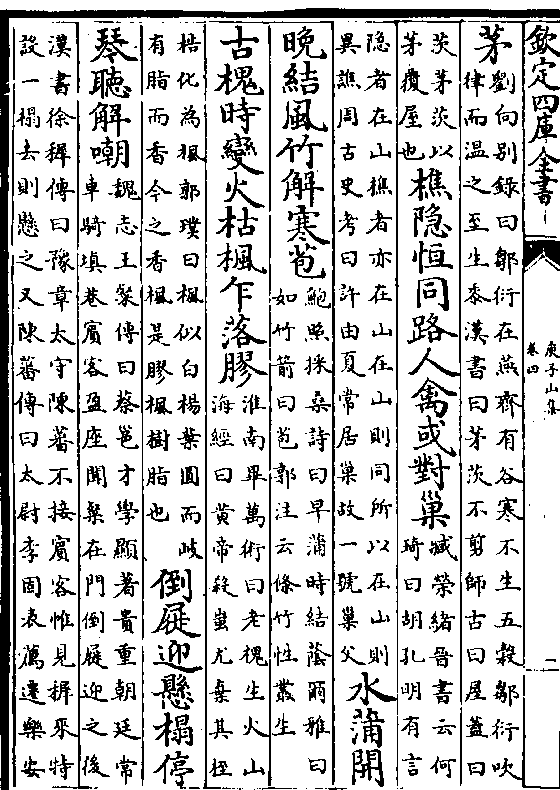 欽定四庫全書
庾子山集
卷四
二
茅
劉向別録曰鄒衍在燕齊有谷寒不生五穀鄒衍吹
律而温之至生黍漢書曰茅茨不剪師古曰屋蓋曰
茨茅茨以
茅覆屋也
樵隐恒同路人禽或對巢
臧榮緒晉書云何
琦曰胡孔明有言
隐者在山樵者亦在山在山則同所以在山則
異譙周古史考曰許由夏常居巢故一號巢父
水蒲開
晚結風竹解寒苞
鮑照採桑詩曰早蒲時結蔭爾雅曰
如竹箭曰苞郭注云條竹性叢生
古槐時變火枯楓乍落膠
淮南畢萬術曰老槐生火山
海經曰黄帝殺蚩尤棄其桎
梏化為楓郭璞曰楓似白楊葉圓而岐
有脂而香今之香楓是膠楓樹脂也
倒屣迎懸榻停
琴聽解嘲
魏志王粲傳曰蔡邕才學顯著貴重朝廷常
車騎填巷賓客盈座聞粲在門倒屣迎之後
漢書徐穉傳曰豫章太守陳蕃不接賓客惟見穉來特
設一榻去則懸之又陳蕃傳曰太尉李固表薦遷樂安